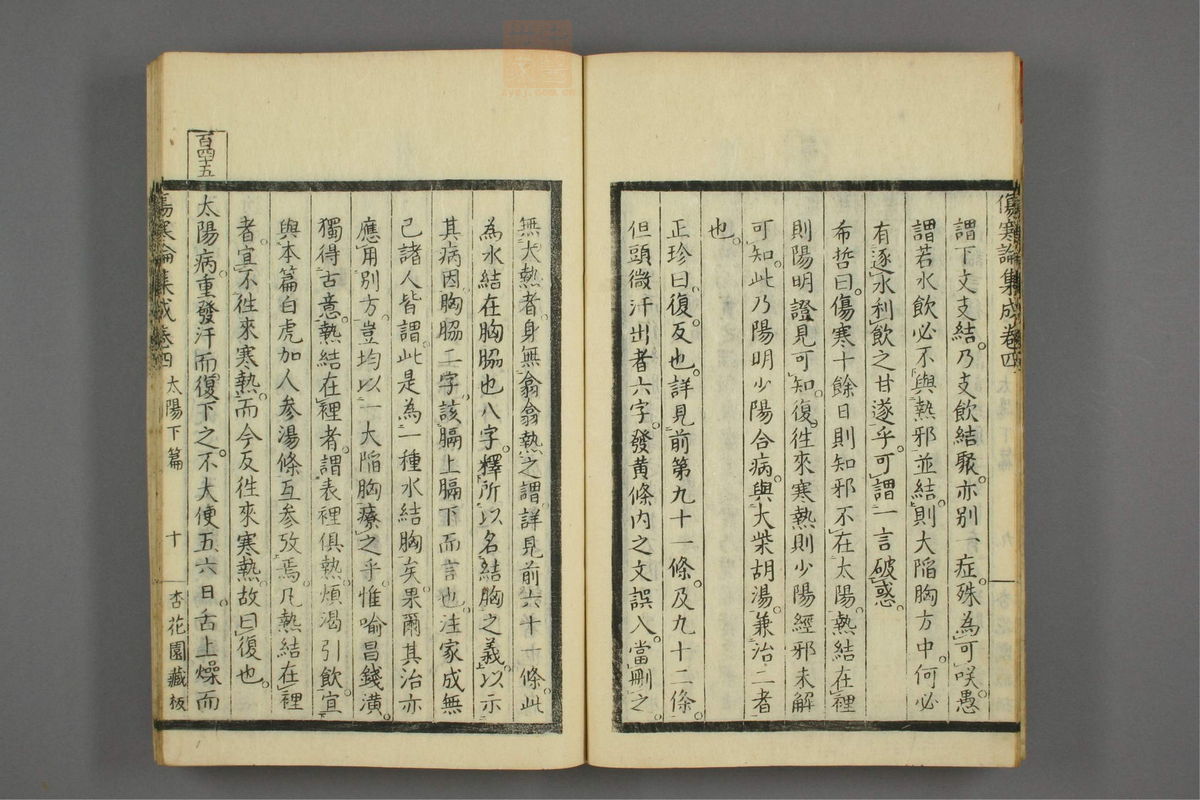 傷寒論集成卷四
謂下文支結乃支飲結聚亦別一症殊為可咲愚
謂若水飲必不與熱邪並結則大陷胸方中何必
有逐水利飲之甘遂乎可謂一言破惑
希哲曰傷寒十餘日則知邪不在太陽熱結在裡
則陽明證見可知復徃來寒熱則少陽經邪未解
可知此乃陽明少陽合病與大柴胡湯兼治二者
也
正珍曰復反也詳見前第九十一條及九十二條
但頭微汗出者六字發黃條內之文誤入當刪之
無大熱者身無翕翕熱之謂詳見前六十一條此
為水結在胸脇也八字釋所以名結胸之義以示
其病因胸脇二字該膈上膈下而言也注家成無
己諸人皆謂此是為一種水結胸矣果爾其治亦
應用別方豈均以一大陷胸療之乎惟喻昌錢潢
獨得古意熱結在裡者謂表裡俱熱煩渴引飲宜
與本篇白虎加人參湯條互參攷焉凡熱結在裡
者宜不徃來寒熱而今反徃來寒熱故曰復也
百四十五
太陽病重發汗而復下之不大便五六日舌上燥而
傷寒論集成卷四 太陽下篇 十 杏花園藏板